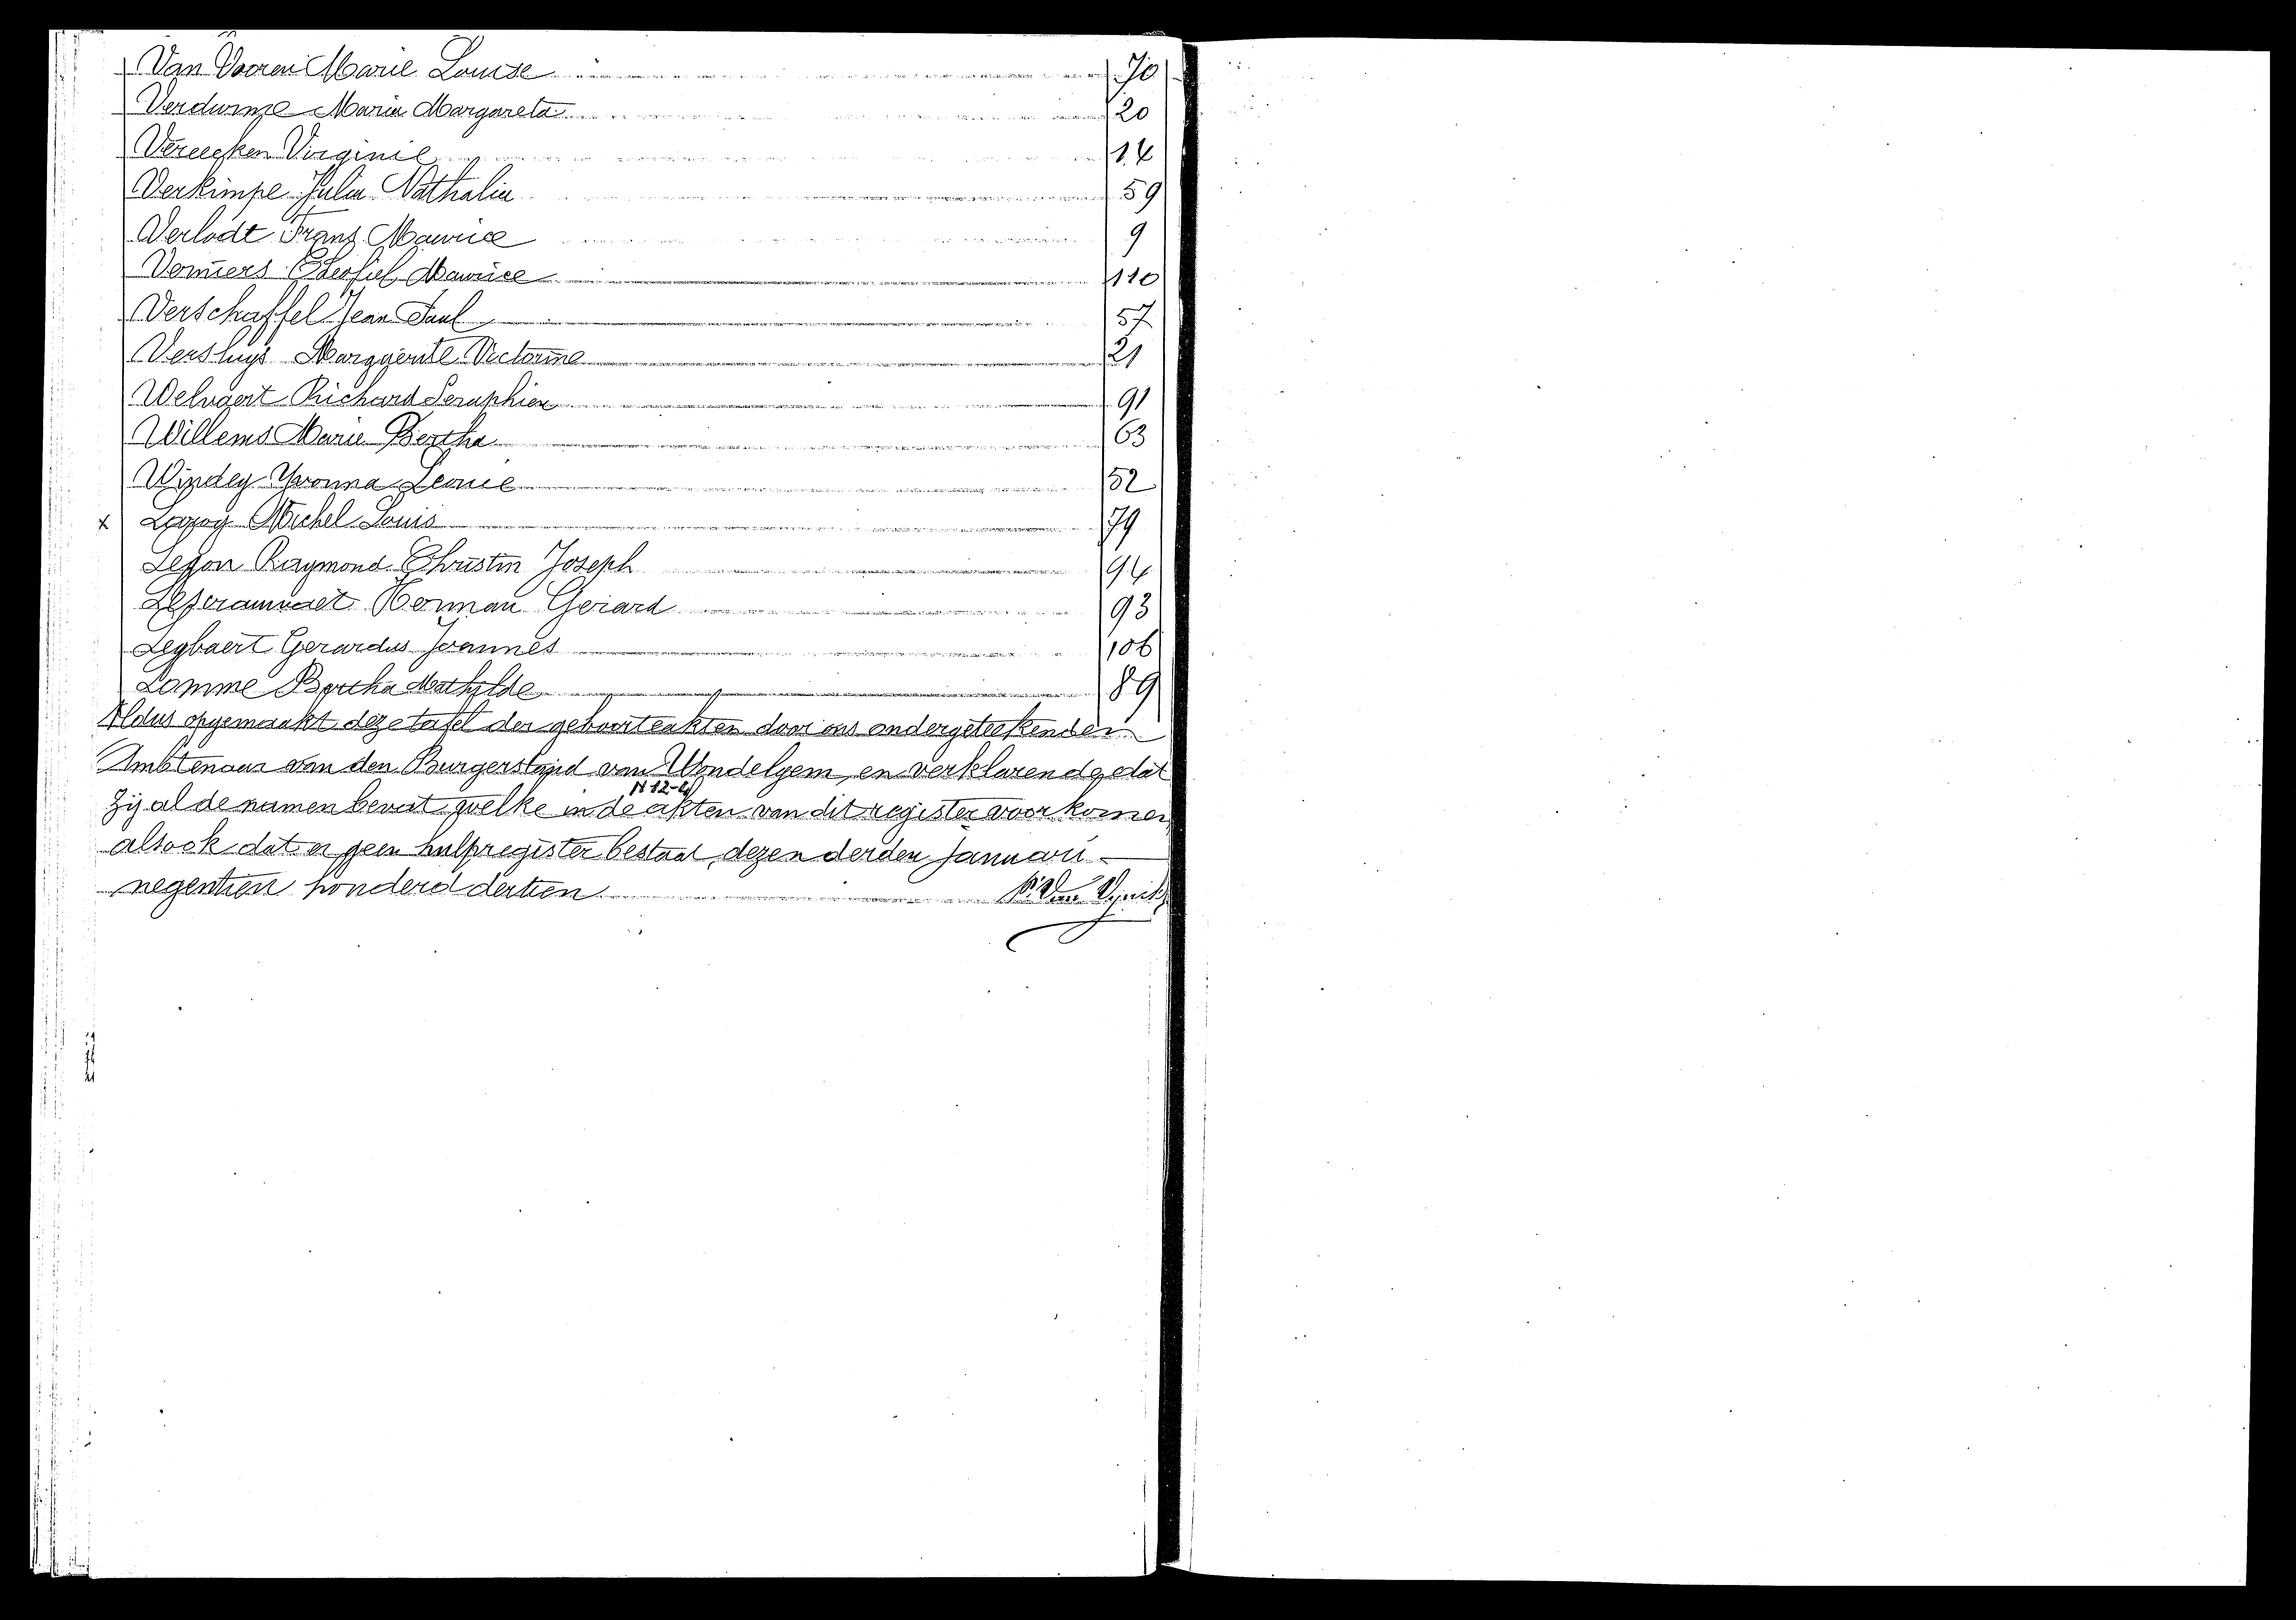 Van Vooren Marie Louise 70
Verdurme Maria Margareta 20
Vereecken Virginie 14
Verkimpe Julia Nathalia 59
Verlodt Franz Maurice 9
Theofiel Maurice 110
Verschaffel Jean Paul 57
Versluys Marguerite Victorine 21
Welvaert Richard Seraphien 91
Willems Marie Bertha 63
Windey Yvonna Leonie 52
x Michel Louis 79
Raymond Christin Joseph 94
Herman Gerard 93
Gerardus Joannes 106
Lomme Bertha Mathilde 89
Aldus opgemaakt deze tafel der geboorteakten door ons ondergeteekenden
Ambtenaar van den Burgerstand van Wondelgem, en verklarende dat
N 12-4
zij al de namen bevat welke in de akten van dit register voorkomen
alsook dat er geen hulpregister bestaat, dezen derden Januari
negentien honderd dertien Van